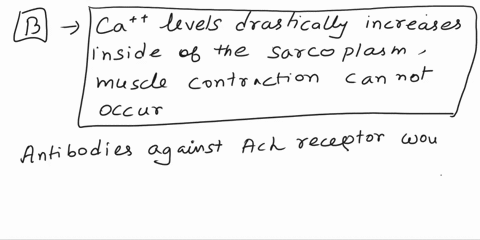 B → Ca++ levels drastically increases
inside of the sarcoplasm,
muscle contraction can not
occur
Antibodies against Ach receptor wou